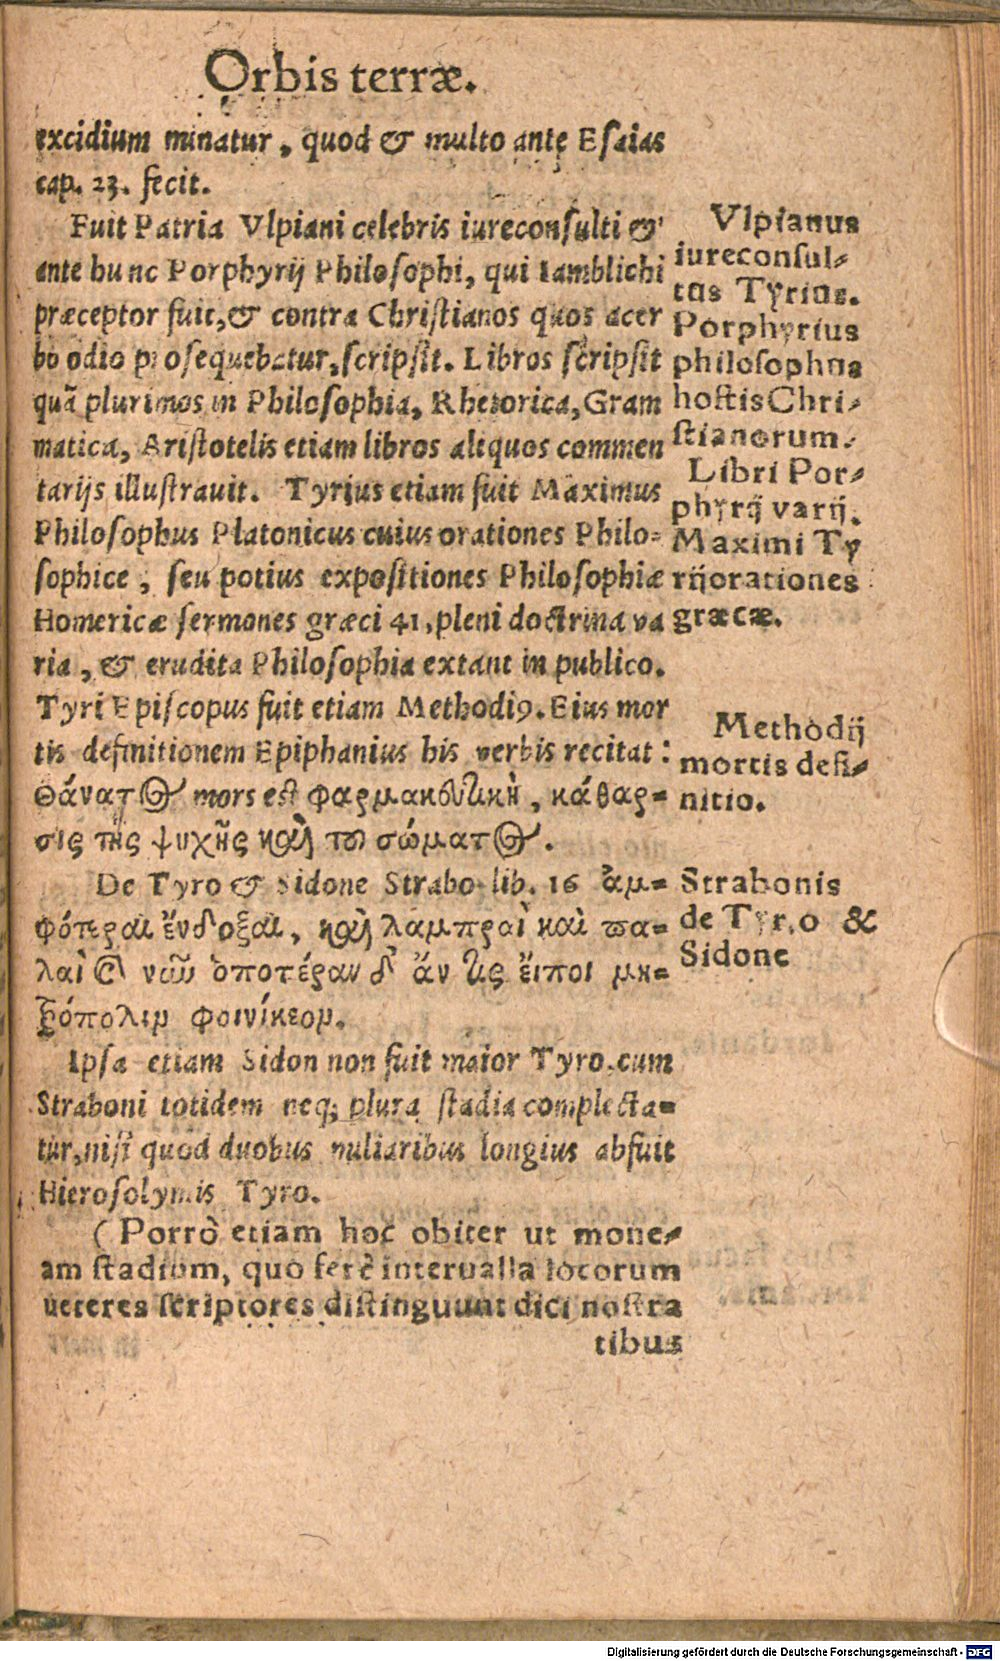 Orbis terræ.
excidium minatur, quod & multo ante Esaias
cap. 23. fecit.
Fuit Patria Vlpiani celebris iureconsulti &
ante hunc Porphyrij Philosophi, qui Iamblichi
præceptor fuit, & contra Christianos quos acer
bo odio prosequebatur, scripsit. Libros scripsit
quã plurimos in Philosophia, Rhetorica, Gram
matica, Aristotelis etiam libros aliquos commen
tarijs illustrauit. Tyrius etiam fuit Maximus
Philosophus Platonicus cuius orationes Philo-
sophice, seu potius expositiones Philosophiæ
Homericæ sermones græci 41, pleni doctrina va
ria, & erudita Philosophia extant in publico.
Tyri Episcopus fuit etiam Methodiꝰ. Eius mor
tis definitionem Epiphanius his verbis recitat:
θάνατος mors est φαρμακευτικὴ, κάθαρ-
σις τῆς ψυχῆς καὶ τοῦ σώματος.
De Tyro & Sidone Strabo lib. 16 ἀμ-
φότεραι ἔνδοξαι, καὶ λαμπραὶ καὶ πα-
λαὶ καὶ νῦν ὁποτέραν δ' ἄν τις εἴποι μη-
τρόπολιν φοινίκεον.
Ipsa etiam Sidon non fuit maior Tyro. cum
Straboni totidem neq; plura stadia complecta-
tur, nisi quod duobus miliaribus longius absuit
Hierosolymis Tyro.
(Porrò etiam hoc obiter ut mone-
am stadium, quo ferè interualla locorum
ueteres scriptores distinguunt dici nostra
tibus
Vlpianus
iureconsul-
tus Tyrius.
Porphyrius
philosophus
hostis Chri-
stianorum.
Libri Por-
phyrij varij.
Maximi Ty
rij orationes
græcæ.
Methodij
mortis defi-
nitio.
Strabonis
de Tyro &
Sidone
Digitalisierung gefördert durch die Deutsche Forschungsgemeinschaft - DFG